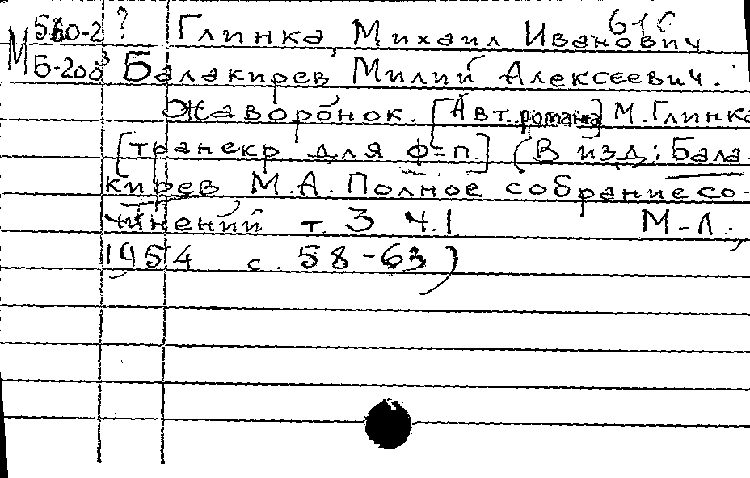 М 560-2 ? Глинка, Михаил Иванович.
Б-203 Балакирев Милий Алексеевич.
Жаворонок. [Авт. романса] М. Глинка
[транскр для ф-п] (В изд: Бала
кирев, М.А. Полное собрание со-
чинений т. 3 ч.1 М-Л.,
1954 с. 58-63)